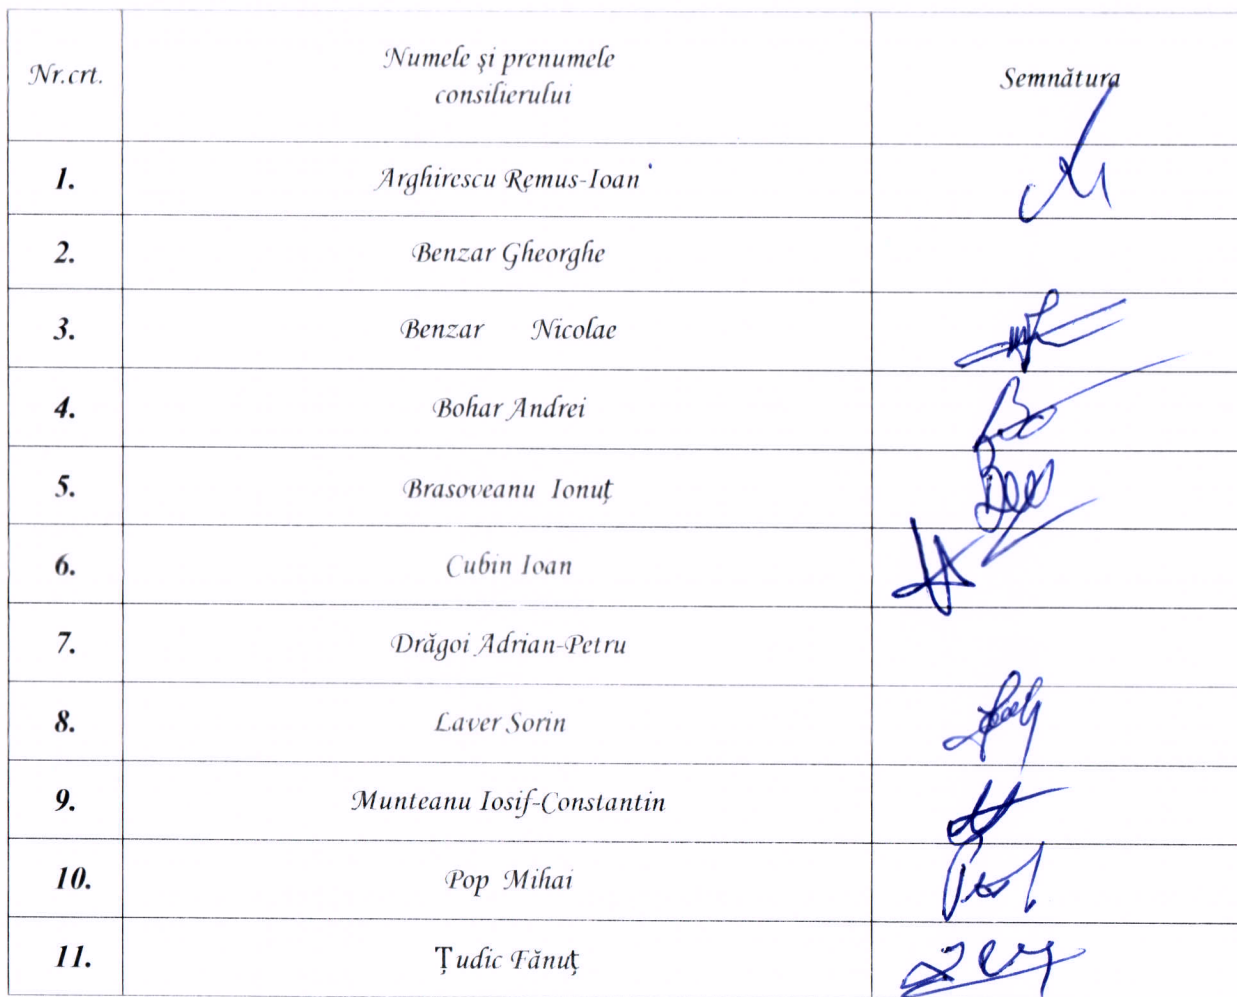 Nr.crt.
Numele şi prenumele
consilierului
Semnătura
1. Arghirescu Remus-Ioan
2. Benzar Gheorghe
3. Benzar Nicolae
4. Bohar Andrei
5. Brasoveanu Ionuţ
6. Cubin Ioan
7. Drăgoi Adrian-Petru
8. Laver Sorin
9. Munteanu Iosif-Constantin
10. Pop Mihai
11. Ţudic Fănuţ